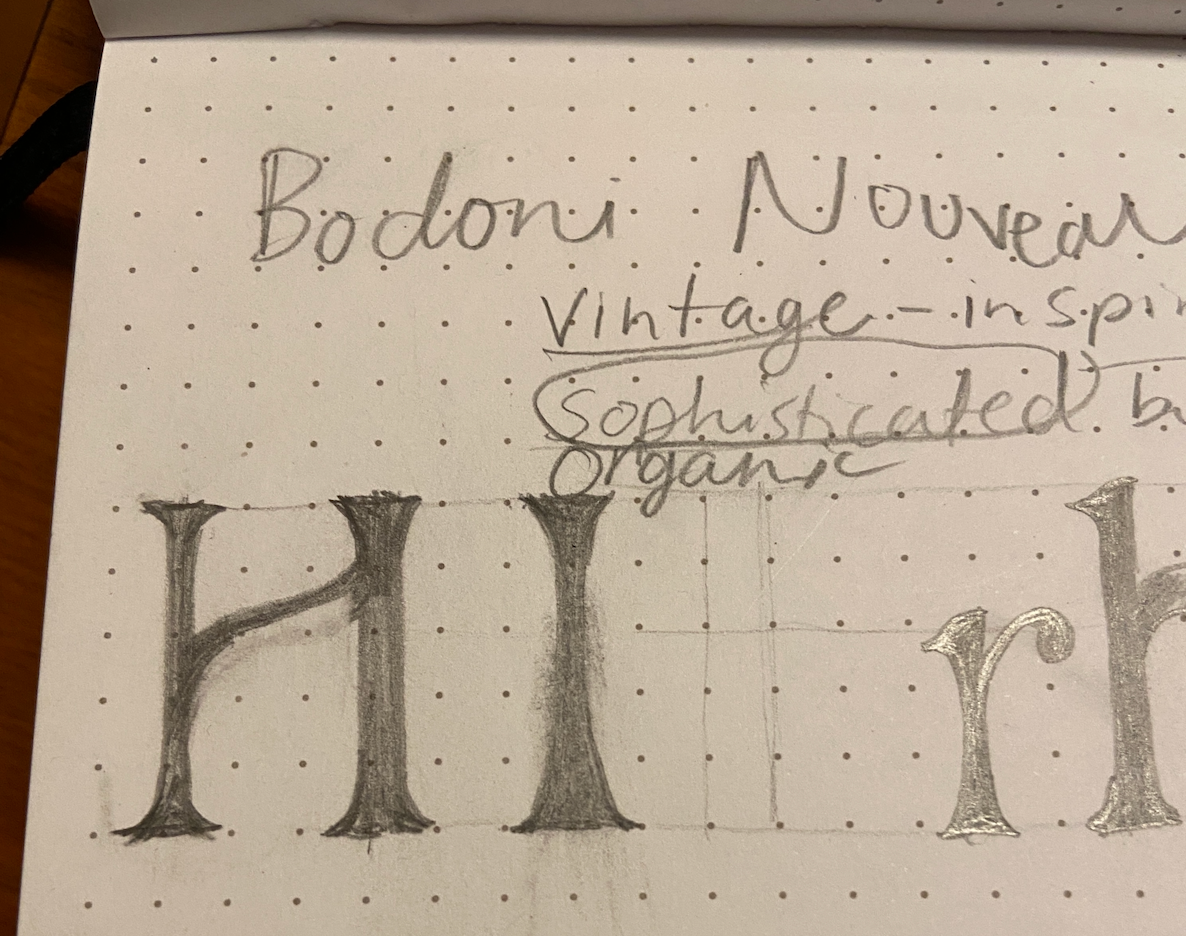 Bodoni Nouveau
vintage-inspir
Sophisticated bu
organic
H I r h